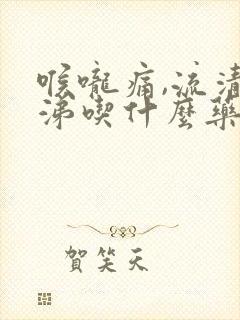 喉嚨痛,流清
涕喫什麼藥
賀笑天